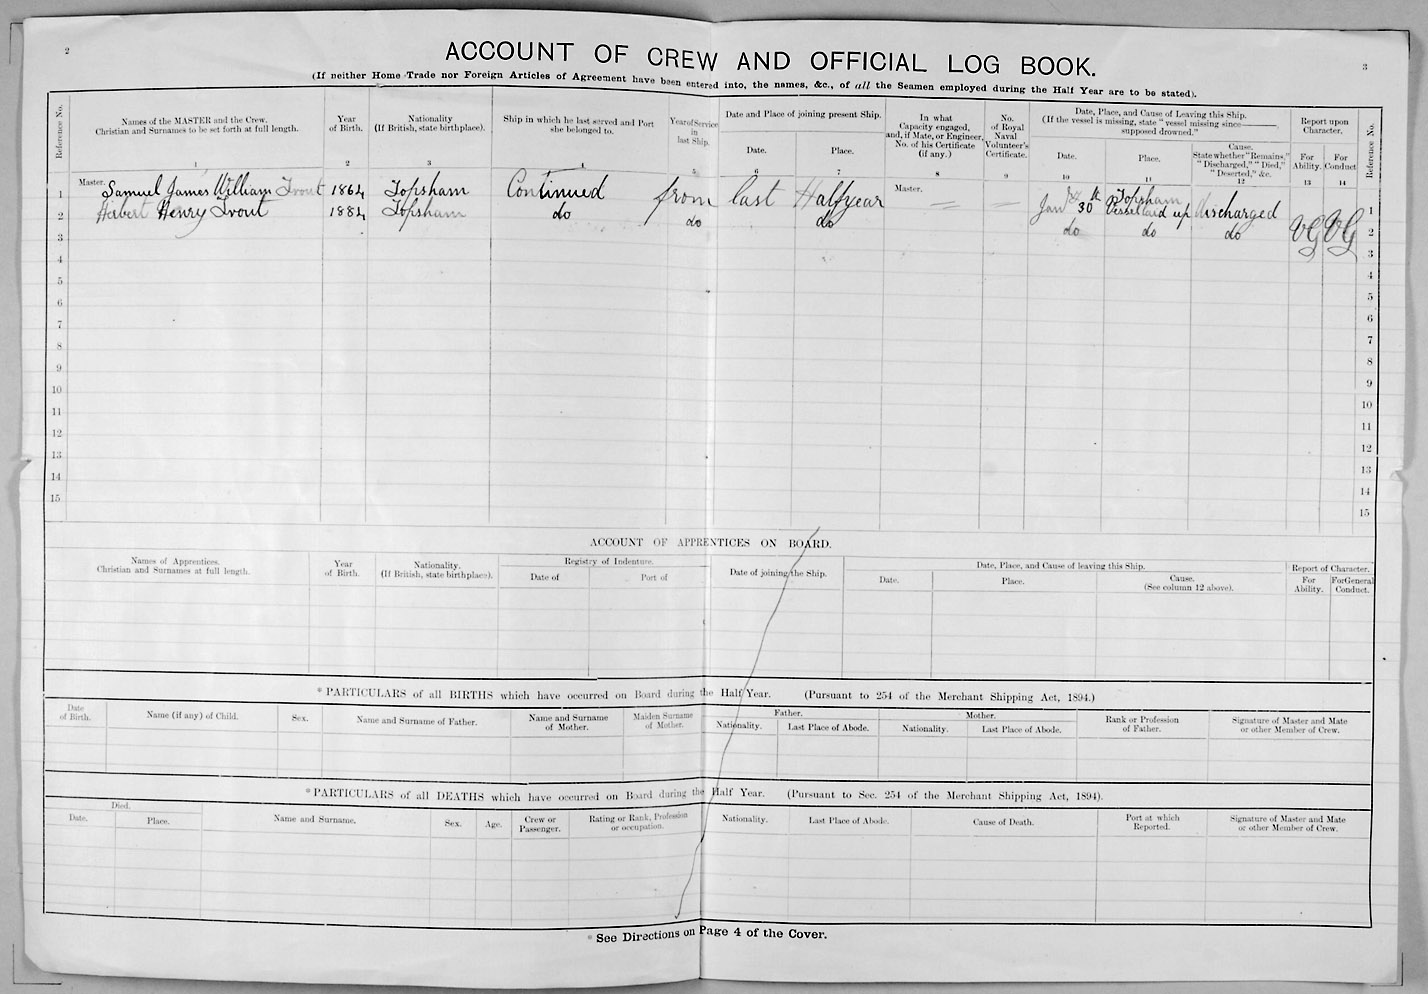 2
3
ACCOUNT OF CREW AND OFFICIAL LOG BOOK.
(If neither Home Trade nor Foreign Articles of Agreement have been entered into, the names, &c., of all the Seamen employed during the Half Year are to be stated).
Reference No.
Names of the MASTER and the Crew.
Christian and Surnames to be set forth at full length.
1
Year
of Birth.
2
Nationality
(If British, state birthplace).
3
Ship in which he last served and Port
she belonged to.
4
Year of Service
in
last Ship.
5
Date and Place of joining present Ship.
Date.
6
Place.
7
In what
Capacity engaged,
and, if Mate, or Engineer,
No. of his Certificate
(if any.)
8
No.
of Royal
Naval
Volunteer's
Certificate.
9
Date, Place, and Cause of Leaving this Ship.
(If the vessel is missing, state "vessel missing since———,
supposed drowned."
Date.
10
Place.
11
Cause.
State whether "Remains,"
"Discharged," "Died,"
"Deserted," &c.
12
Report upon
Character.
For
Ability.
13
For
Conduct
14
Reference No.
1 Master. Samuel James William Trout 1864 Topsham Continued from last Halfyear Master. = — Jan 30th Topsham Vessel laid up discharged 1
2 Herbert Henry Trout 1884 Topsham do do do do do do VG VG 2
3 3
4 4
5 5
6 6
7 7
8 8
9 9
10 10
11 11
12 12
13 13
14 14
15 15
ACCOUNT OF APPRENTICES ON BOARD.
Names of Apprentices.
Christian and Surnames at full length.
Year
of Birth.
Nationality.
(If British, state birthplace).
Registry of Indenture.
Date of
Port of
Date of joining the Ship.
Date, Place, and Cause of leaving this Ship.
Date.
Place.
Cause.
(See column 12 above).
Report of Character.
For
Ability.
For General
Conduct.
*PARTICULARS of all BIRTHS which have occurred on Board during the Half Year. (Pursuant to 254 of the Merchant Shipping Act, 1894.)
Date
of Birth.
Name (if any) of Child.
Sex.
Name and Surname of Father.
Name and Surname
of Mother.
Maiden Surname
of Mother.
Father.
Nationality.
Last Place of Abode.
Mother.
Nationality.
Last Place of Abode.
Rank or Profession
of Father.
Signature of Master and Mate
or other Member of Crew.
*PARTICULARS of all DEATHS which have occurred on Board during the Half Year. (Pursuant to Sec. 254 of the Merchant Shipping Act, 1894).
Died.
Date.
Place.
Name and Surname.
Sex.
Age.
Crew or
Passenger.
Rating or Rank, Profession
or occupation.
Nationality.
Last Place of Abode.
Cause of Death.
Port at which
Reported.
Signature of Master and Mate
or other Member of Crew.
*See Directions on Page 4 of the Cover.